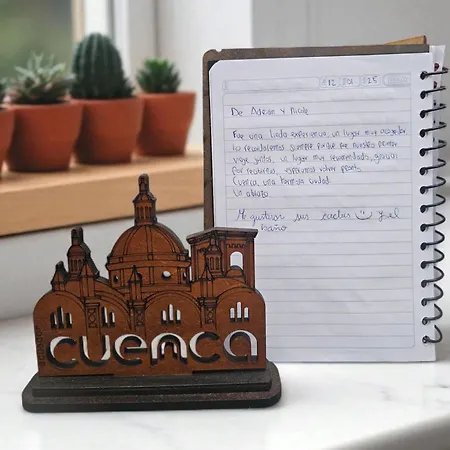 12 01 25
De Adrián y Nicole
Fue una linda experiencia, un lugar muy acogedor
lo recordaremos siempre porque fue nuestro primer
viaje juntos, un lugar muy recomendado, gracias
por recibirnos, esperamos volver pronto.
Cuenca una hermosa ciudad.
Un abrazo.
Me gustaron sus cactus y el
baño
cuenca